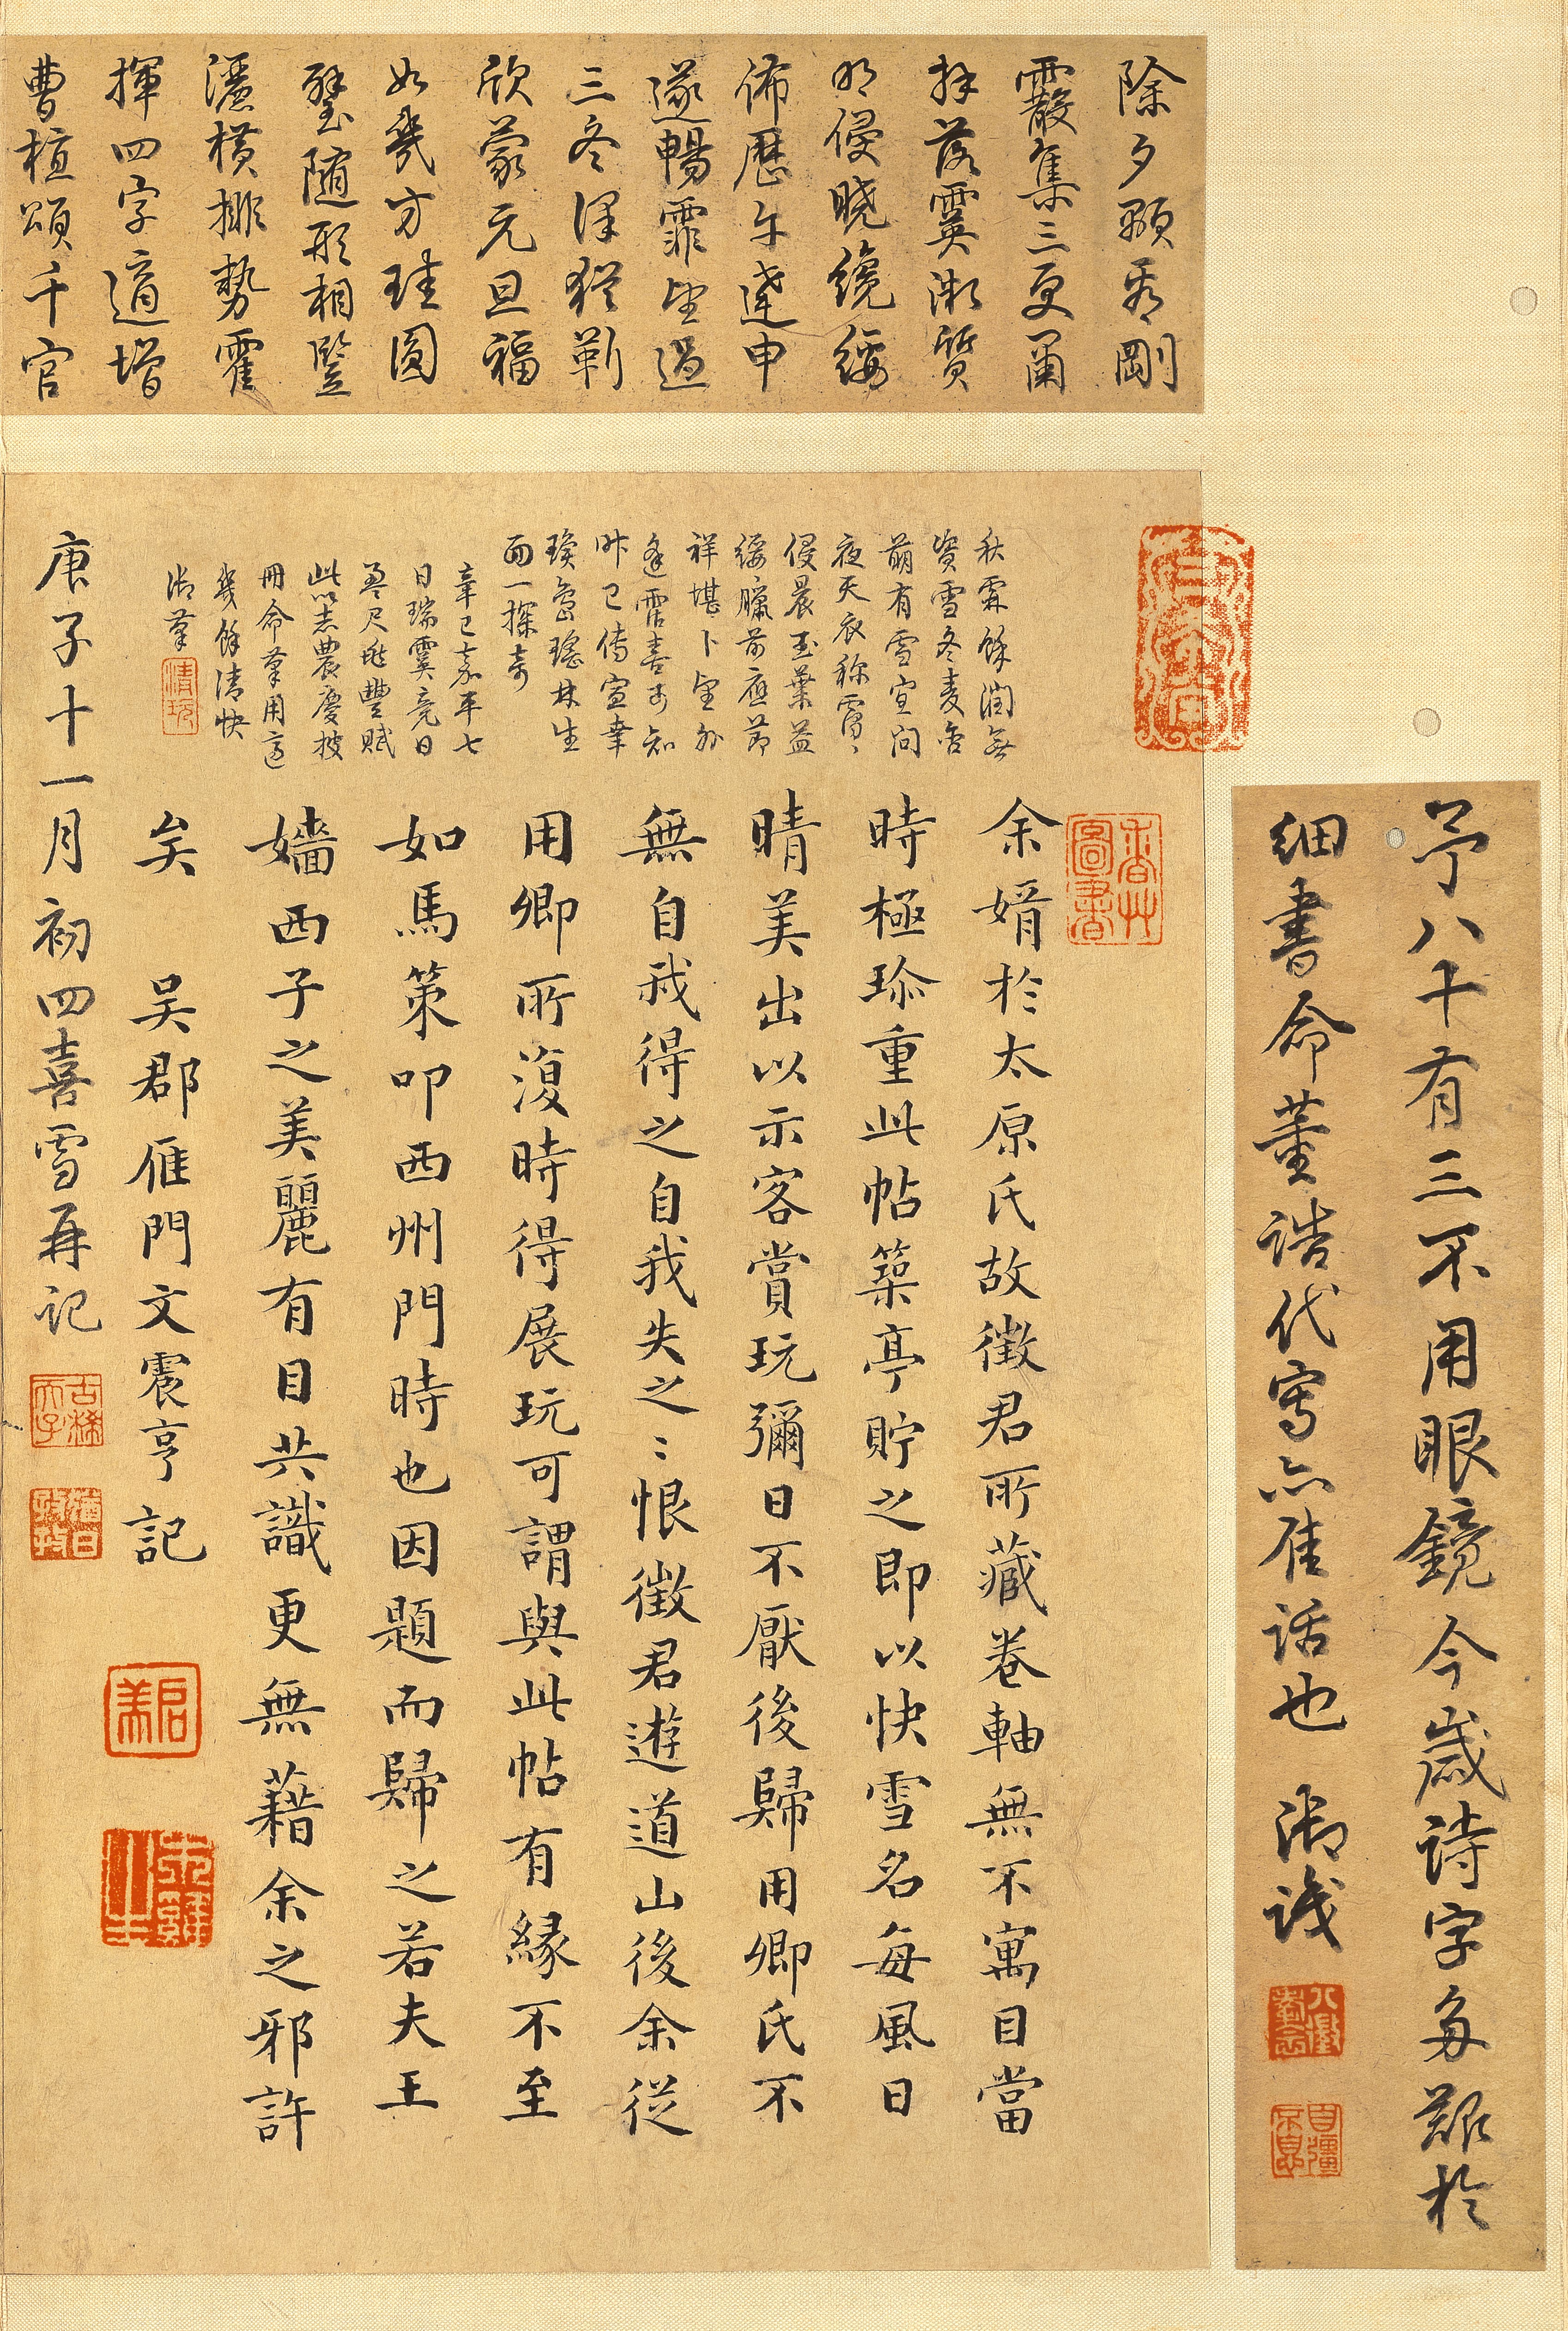 予八十有三不用眼鏡今歲詩字多艱於
細書命董誥代寫亦佳話也 御識
除夕顥烝剛
霰集三更闌
拜落霙漸質
明侵曉纔緌
佈歷午達申
遂暢霏望過
三冬澤猶靳
欣蒙元旦福
如幾方珪圓
璧隨形相豎
灑橫排勢霍
揮四字適增
曹植頌千官
秋霖餘潤無
資雪冬麥含
萌有雪宜問
夜天衣稱霄〻
侵晨玉葉益
緌臘前應節
祥堪卜望外
逢霑喜可知
昨已傳宣幸
瓊島瑤林生
面一探奇
辛巳嘉平七
日瑞霙竟日
盈尺逾豐賦
此以志農慶披
冊命筆用適
幾餘清快
御筆
清玩
余婿於太原氏故徵君所藏卷軸無不寓目當
時極珍重此帖築亭貯之即以快雪名每風日
晴美出以示客賞玩彌日不厭後歸用卿氏不
無自我得之自我失之〻恨徵君遊道山後余從
用卿所復時得展玩可謂與此帖有緣不至
如馬策叩西州門時也因題而歸之若夫王
嬙西子之美麗有目共識更無藉余之邪許
矣 吳郡雁門文震亨記
庚子十一月初四喜雪再記
古稀天子
猶日孜孜
八徵耄念
自彊不息